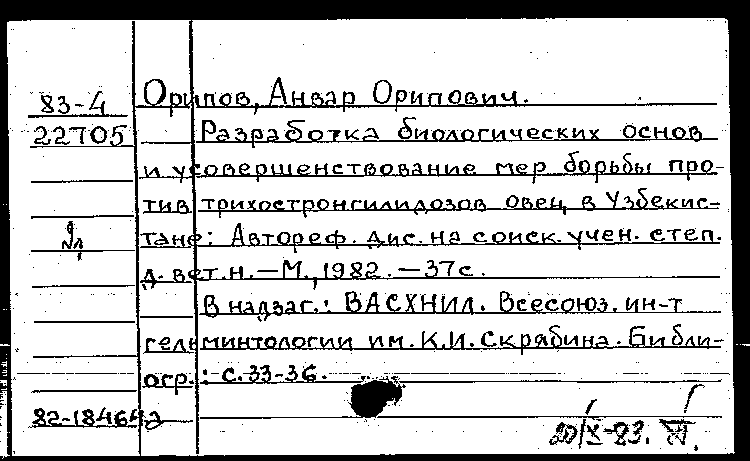 83-4
22705
Орипов, Анвар Орипович.
Разработка биологических основ
и усовершенствование мер борьбы про-
тив трихостронгилидозов овец в Узбекис-
тане: Автореф. дис. на соиск. учен. степ.
д. вет. н. — М., 1982. — 37с.
В надзаг.: ВАСХНИЛ. Всесоюз. ин-т
гельминтологии им. К.И. Скрябина. Библи-
огр.: с. 33-36.
82-18464а
20/X-83.